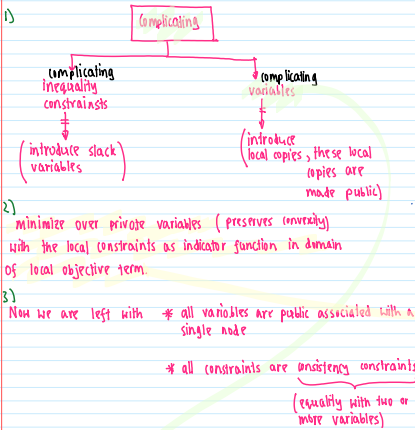 1)
complicating
complicating
inequality
constrainsts
complicating
variables
(introduce slack
variables)
(introduce
local copies, these local
copies are
made public)
2)
minimize over private variables (preserves convexity)
with the local constraints as indicator function in domain
of local objective term.
3)
Now we are left with * all variables are public associated with a
single node
* all constraints are consistency constraints
(equality with two or
more variables)